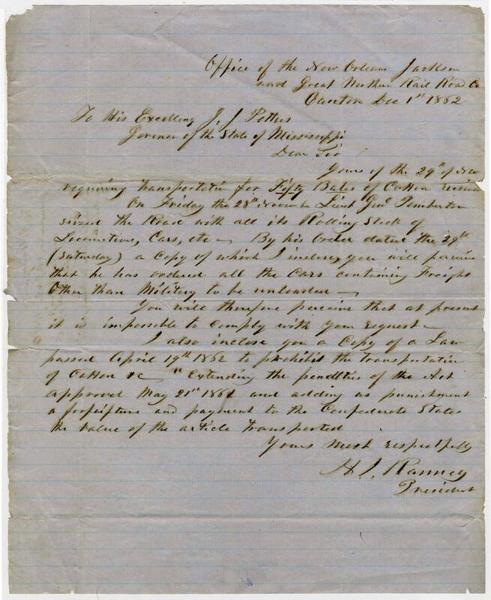 Office of the New Orleans Jackson
and Great Northern Rail Road Co
Canton Dec 1st 1862
To His Excellency J. J. Pettus
Governor of the State of Mississippi
Dear Sir
Yours of the 29th of Nov
requiring transportation for Fifty Bales of Cotton received
On Friday the 28th November Lieut Genl Pemberton
seized the Road with all its Rolling Stock of
Locomotives, Cars, etc — By his order dated the 29th
(Saturday) a Copy of which I inclose you will perceive
that he has ordered all the Cars containing Freight
other than Military to be unloaded —
You will therefore perceive that at present
it is impossible to comply with your request —
I also inclose you a Copy of a Law
passed April 19th 1862 to prohibit the transportation
of Cotton &c — "Extending the penalties of the Act
approved May 21st 1861 and adding as punishment
a forfeiture and payment to the Confederate States
the value of the article transported
Yours most respectfully
H. J. Ranney
President